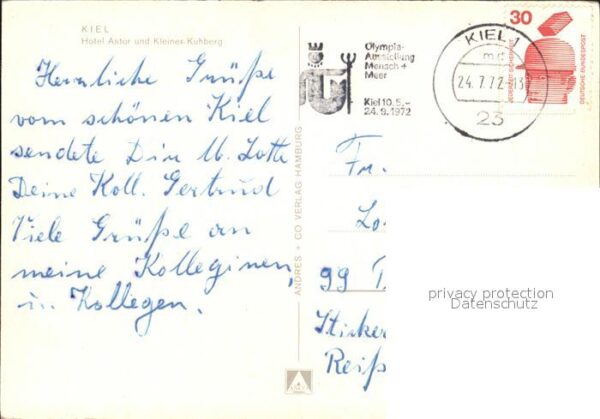 KIEL
Hotel Astor und Kleiner Kuhberg
Herzliche Grüße
vom schönen Kiel
sendete Dir U. Lotte
Deine Koll. Gertrud
Viele Grüße an
meine Kolleginen,
u. Kollegen.
ANDRES + CO VERLAG HAMBURG
Olympia-
Ausstellung
Mensch +
Meer
Kiel 10.5.–
24.9.1972
KIEL 1
24.7.72-13
23
30
JEDERZEIT SICHERHEIT
DEUTSCHE BUNDESPOST
Fr.
Lo
99
Sticker
Reiß
privacy protection
Datenschutz